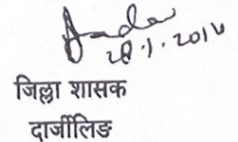 28.1.2014
जिल्ला शासक
दार्जीलिङ